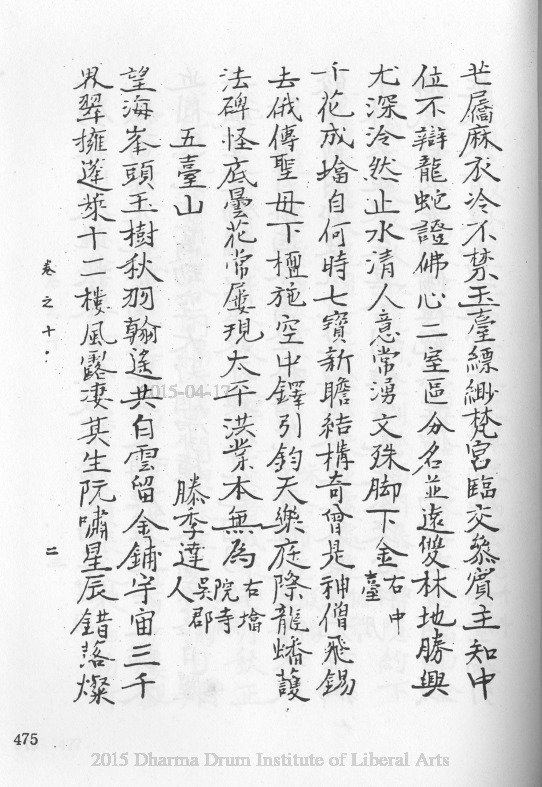 芒屩麻衣冷不禁玉臺縹緲梵宮臨交叅賓主知中
位不辯龍蛇證佛心二室區分名並遠雙林地勝興
尤深泠然止水清人意常湧文殊脚下金右中臺
千花成墖自何時七寶新瞻結構奇曾是神僧飛錫
去俄傳聖母下檀施空中鐸引鈞天樂庭際龍蟠護
法碑怪底曇花常屢現太平洪業本無為右墖院寺
五臺山 滕季達吳郡人
望海峯頭玉樹秋羽翰遙共白雲留金鋪宇宙三千
界翠擁蓬萊十二樓風露淒其生阮嘯星辰錯落燦
卷之十 二
475
2015-04-17
2015 Dharma Drum Institute of Liberal Arts